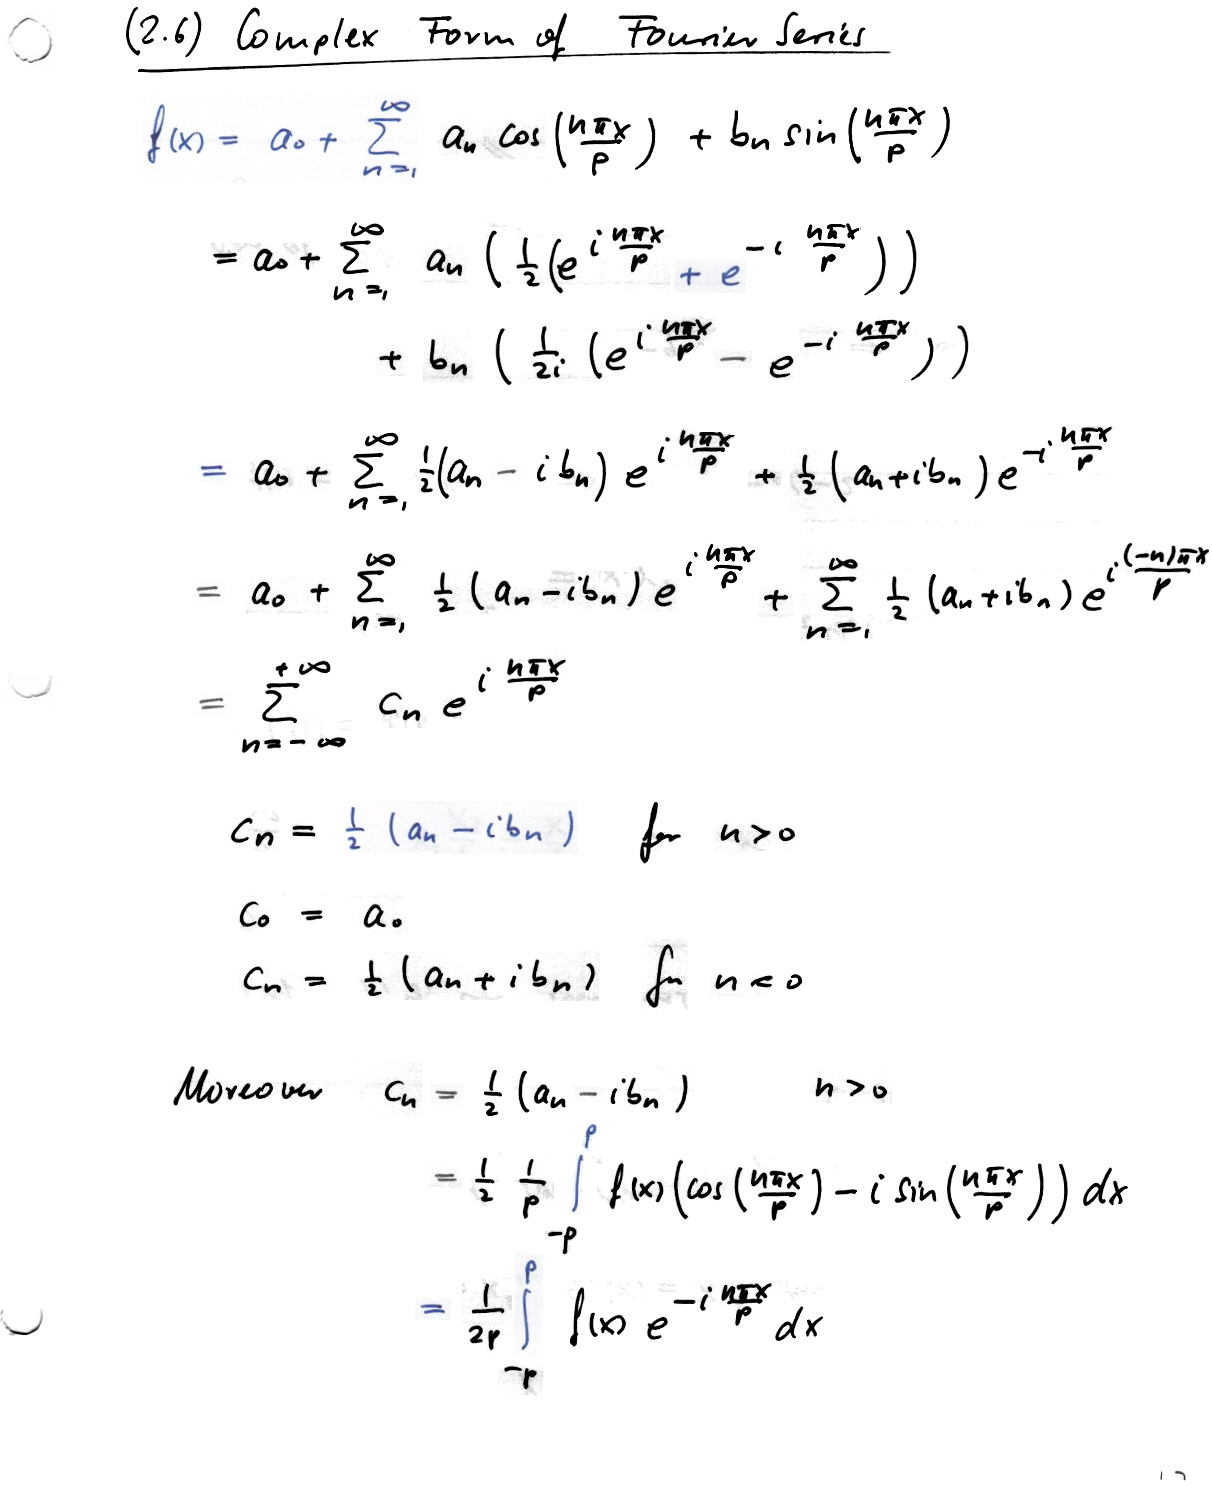 (2.6) Complex Form of Fourier Series
f(x) = a₀ + ∑_{n=1}^{∞} aₙ cos(nπx/p) + bₙ sin(nπx/p)
= a₀ + ∑_{n=1}^{∞} aₙ (1/2 (e^{i nπx/p} + e^{-i nπx/p}))
+ bₙ (1/2i (e^{i nπx/p} - e^{-i nπx/p}))
= a₀ + ∑_{n=1}^{∞} 1/2 (aₙ - i bₙ) e^{i nπx/p} + 1/2 (aₙ + i bₙ) e^{-i nπx/p}
= a₀ + ∑_{n=1}^{∞} 1/2 (aₙ - i bₙ) e^{i nπx/p} + ∑_{n=1}^{∞} 1/2 (aₙ + i bₙ) e^{i (-n)πx/p}
= ∑_{n=-∞}^{+∞} cₙ e^{i nπx/p}
cₙ = 1/2 (aₙ - i bₙ) for n > 0
c₀ = a₀
cₙ = 1/2 (aₙ + i bₙ) for n < 0
Moreover cₙ = 1/2 (aₙ - i bₙ) n > 0
= 1/2 1/p ∫_{-p}^{p} f(x) (cos(nπx/p) - i sin(nπx/p)) dx
= 1/2p ∫_{-p}^{p} f(x) e^{-i nπx/p} dx